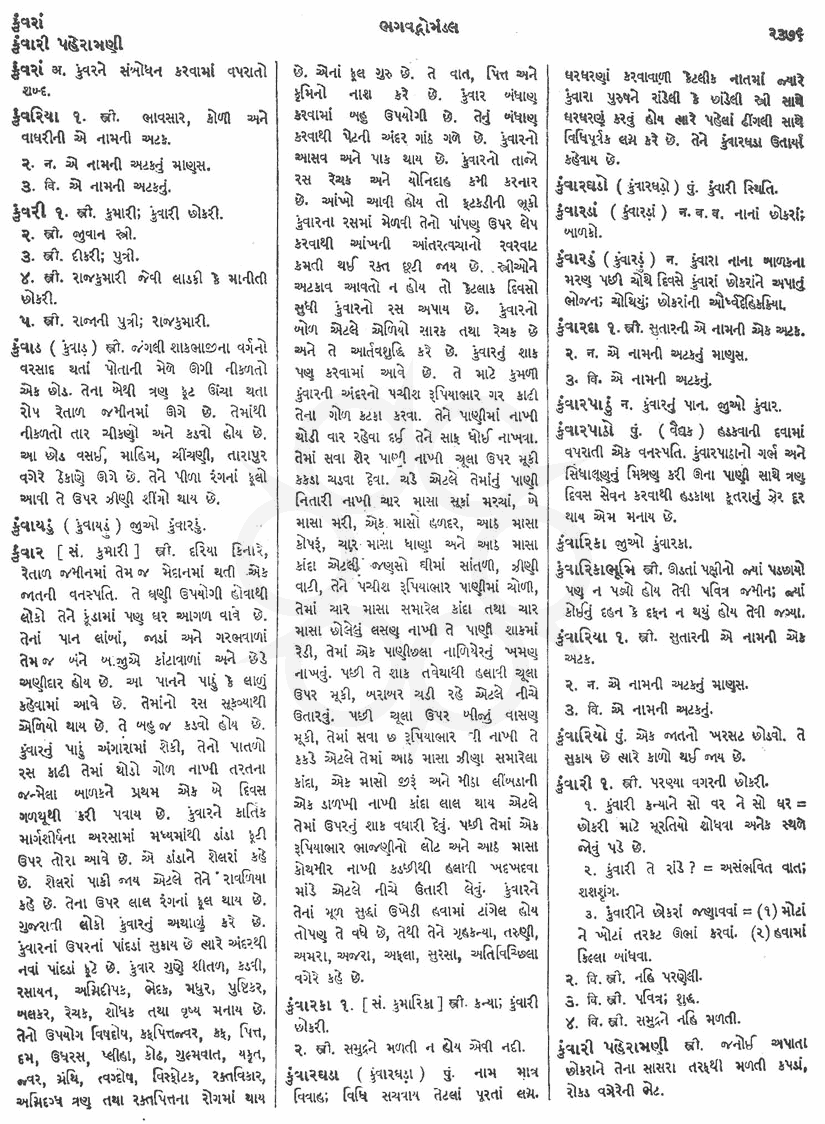 કુંવરાં
કુંવારી પહેરામણી
ભગવદ્ગોમંડલ
૨૩૭૯
કુંવરાં અ. કુંવરને સંબોધન કરવામાં વપરાતો
શબ્દ.
કુંવરિયા ૧. સ્ત્રી. ભાવસાર, કોળી અને
વાઘરીની એ નામની અટક.
૨. ન. એ નામની અટકનું માણસ.
૩. વિ. એ નામની અટકનું.
કુંવરી ૧. સ્ત્રી. કુમારી; કુંવારી છોકરી.
૨. સ્ત્રી. જુવાન સ્ત્રી.
૩. સ્ત્રી. દીકરી; પુત્રી.
૪. સ્ત્રી. રાજકુમારી જેવી લાડકી કે માનીતી
છોકરી.
૫. સ્ત્રી. રાજાની પુત્રી; રાજકુમારી.
કુંવાડ ( કુંવાડ઼ ) સ્ત્રી. જંગલી શાકભાજીના વર્ગનો
વરસાદ થતાં પોતાની મેળે ઊગી નીકળતો
એક છોડ. તેના બેથી ત્રણ ફૂટ ઊંચા થતા
રોપ રેતાળ જમીનમાં ઊગે છે. તેમાંથી
નીકળતો તાર ચીકણો અને કડવો હોય છે.
આ છોડ વસઈ, માહિમ, ચીંચણી, તારાપુર
વગેરે ઠેકાણે ઊગે છે. તેને પીળા રંગનાં ફૂલો
આવી તે ઉપર ઝીણી શીંગો થાય છે.
કુંવાયડું ( કુંવાયડું઼ ) જુઓ કુંવારડું.
કુંવાર [ સં. કુમારી ] સ્ત્રી. દરિયા કિનારે,
રેતાળ જમીનમાં તેમ જ મેદાનમાં થતી એક
જાતની વનસ્પતિ. તે ઘણી ઉપયોગી હોવાથી
લોકો તેને કૂંડામાં પણ ઘર આગળ વાવે છે.
તેનાં પાન લાંબાં, જાડાં અને ગરભવાળાં
તેમ જ બંને બાજુએ કાંટાવાળાં અને છેડે
અણીદાર હોય છે. આ પાનને પાઠું કે લાળું
કહેવામાં આવે છે. તેમાંનો રસ સૂકવ્યાથી
એળિયો થાય છે. તે બહુ જ કડવો હોય છે.
કુંવારનું પાઠું અંગારામાં શેકી, તેનો પાતળો
રસ કાઢી તેમાં થોડો ગોળ નાખી તરતના
જન્મેલા બાળકને પ્રથમ એક બે દિવસ
ગળથૂથી કરી પવાય છે. કુંવારને કાર્તિક
માર્ગશીર્ષના અરસામાં મધ્યમાંથી ડાંડા ફૂટી
ઉપર તોરા આવે છે. એ ડાંડાને શેલરાં કહે
છે. શેલરાં પાકી જાય એટલે તેને રાવળિયા
કહે છે. તેના ઉપર લાલ રંગનાં ફૂલ થાય છે.
ગુજરાતી લોકો કુંવારનું અથાણું કરે છે.
કુંવારનાં ઉપરનાં પાંદડાં સુકાય છે ત્યારે અંદરથી
નવાં પાંદડાં ફૂટે છે. કુંવાર ગુણે શીતળ, કડવી,
રસાયન, અગ્નિદીપક, ભેદક, મધુર, પુષ્ટિકર,
બલકર, રેચક, શોધક તથા વૃષ્ય મનાય છે.
તેનો ઉપયોગ વિષદોષ, કફપિત્તજ્વર, કફ, પિત્ત,
દમ, ઉધરસ, પ્લીહા, કોઢ, ગુલ્મવાત, યકૃત,
જ્વર, ગ્રંથિ, ત્વગ્દોષ, વિસ્ફોટક, રક્તવિકાર,
અગ્નિદગ્ધ ત્રણુ તથા રક્તપિત્તના રોગમાં થાય
છે. એનાં ફૂલ ગુરુ છે. તે વાત, પિત્ત અને
કૃમિનો નાશ કરે છે. કુંવાર બંધાણ
કરવામાં બહુ ઉપયોગી છે. તેનું બંધાણ
કરવાથી પેટની અંદર ગાંઠ ગળે છે. કુંવારનો
આસવ અને પાક થાય છે. કુંવારનો તાજો
રસ રેચક અને યોનિદાહ કમી કરનાર
છે. આંખો આવી હોય તો ફટકડીની ભૂકી
કુંવારના રસમાં મેળવી તેનો પાંપણ ઉપર લેપ
કરવાથી આંખની આંતરત્વચાનો રવરવાટ
કમતી થઈ રક્ત છૂટી જાય છે. સ્ત્રીઓને
અટકાવ આવતો ન હોય તો કેટલાક દિવસો
સુધી કુંવારનો રસ અપાય છે. કુંવારનો
બોળ એટલે એળિયો સારક તથા રેચક છે
અને તે આર્તવશુદ્ધિ કરે છે. કુંવારનું શાક
પણ કરવામાં આવે છે. તે માટે કુમળી
કુંવારની અંદરનો પચીશ રૂપિયાભાર ગર કાઢી
તેના ગોળ કટકા કરવા. તેને પાણીમાં નાખી
થોડી વાર રહેવા દઈ તેને સાફ ધોઈ નાખવા.
તેમાં સવા શેર પાણી નાખી ચૂલા ઉપર મૂકી
કકડા ચડવા દેવા. ચડે એટલે તેમાંનું પાણી
નિતારી નાખી ચાર માસા સૂકાં મરચાં, બે
માસા મરી, એક માસો હળદર, આઠ માસા
કોપરું, ચાર માસા ધાણા અને આઠ માસા
કાંદા એટલી જણસો ઘીમાં સાંતળી, ઝીણી
વાટી, તેને પચીશ રૂપિયાભાર પાણીમાં ચોળી,
તેમાં ચાર માસા સમારેલ કાંદા તથા ચાર
માસા છોલેલું લસણ નાખી તે પાણી શાકમાં
રેડી, તેમાં એક પાણીછલા નાળિયેરનું ખમણ
નાખવું. પછી તે શાક તવેથાથી હલાવી ચૂલા
ઉપર મૂકી, બરાબર ચડી રહે એટલે નીચે
ઉતારવું. પછી ચૂલા ઉપર બીજું વાસણ
મૂકી, તેમાં સવા છ રૂપિયાભાર ઘી નાખી તે
કકડે એટલે તેમાં આઠ માસા ઝીણા સમારેલા
કાંદા, એક માસો જીરૂં અને મીઠા લીંબડાની
એક ડાળખી નાખી કાંદા લાલ થાય એટલે
તેમાં ઉપરનું શાક વઘારી દેવું. પછી તેમાં એક
રૂપિયાભાર ભાજણીનો લોટ અને આઠ માસા
કોથમીર નાખી કડછીથી હલાવી ખદખદવા
માંડે એટલે નીચે ઉતારી લેવું. કુંવારને
તેનાં મૂળ સુદ્ધાં ઉખેડી હવામાં ટાંગેલ હોય
તોપણ તે વધે છે, તેથી તેને ગૃહકન્યા, તરુણી,
અમરા, અજરા, અફલા, સુરસા, અતિવિચ્છિલા
વગેરે કહે છે.
કુંવારકા ૧. [ સં. કુમારિકા ] સ્ત્રી. કન્યા; કુંવારી
છોકરી.
૨. સ્ત્રી. સમુદ્રને મળતી ન હોય એવી નદી.
કુંવારઘડા ( કુંવારઘડ઼ા ) પું. નામ માત્ર
વિવાહ; વિધિ સચવાય તેટલાં પૂરતાં લગ્ન.
ઘરઘરણાં કરવાવાળી કેટલીક નાતમાં જ્યારે
કુંવારા પુરુષને રાંડેલી કે છાંડેલી સ્ત્રી સાથે
ઘરઘરણું કરવું હોય ત્યારે પહેલાં ઢીંગલી સાથે
વિધિપૂર્વક લગ્ન કરે છે. તેને કુંવારઘડા ઉતાર્યા
કહેવાય છે.
કુંવારઘડો ( કુંવારઘડ઼ો ) પું. કુંવારી સ્થિતિ.
કુંવારડાં ( કુંવારડ઼ાં ) ન. બ. વ. નાનાં છોકરાં;
બાળકો.
કુંવારડું ( કુંવારડ઼ું ) ન. કુંવારા નાના બાળકના
મરણ પછી ચોથે દિવસે કુંવારાં છોકરાંને અપાતું
ભોજન; ચોથિયું; છોકરાંની ઔર્ધ્વદેહિકક્રિયા.
કુંવારદા ૧. સ્ત્રી. સુતારની એ નામની એક અટક.
૨. ન. એ નામની અટકનું માણસ.
૩. વિ. એ નામની અટકનું.
કુંવારપાઠું ન. કુંવારનું પાન. જુઓ કુંવાર.
કુંવારપાઠો પું. ( વૈદ્યક ) હડકવાની દવામાં
વપરાતી એક વનસ્પતિ. કુંવારપાઠાનો ગર્ભ અને
સિંધાલૂણનું મિશ્રણ કરી ઊના પાણી સાથે ત્રણ
દિવસ સેવન કરવાથી હડકાયા કૂતરાનું ઝેર દૂર
થાય એમ મનાય છે.
કુંવારિકા જુઓ કુંવારકા.
કુંવારિકાભૂમિ સ્ત્રી. ઊડતાં પક્ષીનો જ્યાં પડછાયો
પણ ન પડ્યો હોય તેવી પવિત્ર જમીન; જ્યાં
કોઈનું દહન કે દફન ન થયું હોય તેવી જગ્યા.
કુંવારિયા ૧. સ્ત્રી. સુતારની એ નામની એક
અટક.
૨. ન. એ નામની અટકનું માણસ.
૩. વિ. એ નામની અટકનું.
કુંવારિયો પું. એક જાતનો ખરસટ છોડવો. તે
સુકાય છે ત્યારે કાળો થઈ જાય છે.
કુંવારી ૧. સ્ત્રી. પરણ્યા વગરની છોકરી.
૧. કુંવારી કન્યાને સો વર ને સો ઘર =
છોકરી માટે મૂરતિયો શોધવા અનેક સ્થળે
જોવું પડે છે.
૨. કુંવારી તે રાંડે ? = અસંભવિત વાત;
શશશૃંગ.
૩. કુંવારીને છોકરાં જણાવવાં = (૧) મોટાં
ને ખોટાં તરકટ ઊભાં કરવાં. (૨) હવામાં
કિલ્લા બાંધવા.
૨. વિ. સ્ત્રી. નહિ પરણેલી.
૩. વિ. સ્ત્રી. પવિત્ર; શુદ્ધ.
૪. વિ. સ્ત્રી. સમુદ્રને નહિ મળતી.
કુંવારી પહેરામણી સ્ત્રી. જનોઈ અપાતા
છોકરાંને તેના સાસરા તરફથી મળતી કપડાં,
રોકડ વગેરેની ભેટ.